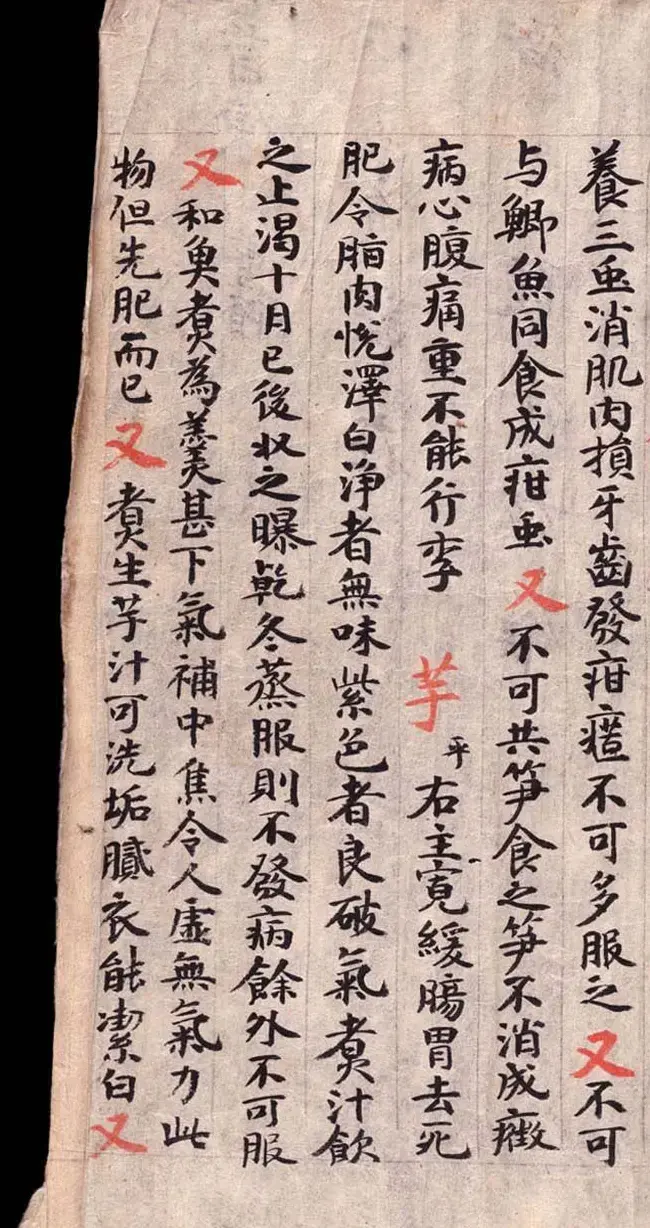 養三虫消肌肉損牙齒發疳𤻤不可多服之又不可
与鯽魚同食成疳虫又不可共笋食之笋不消成癥
病心腹痛重不能行李芋平右主寬緩腸胃去死
肥令脂肉悅澤白净者無味紫色者良破氣煑汁飲
之止渴十月已後收之曝乾冬蒸服則不發病餘外不可服
又和魚煑為羹甚下氣補中焦令人虛無氣力此
物但先肥而已又煑生芋汁可洗垢膩衣能潔白又